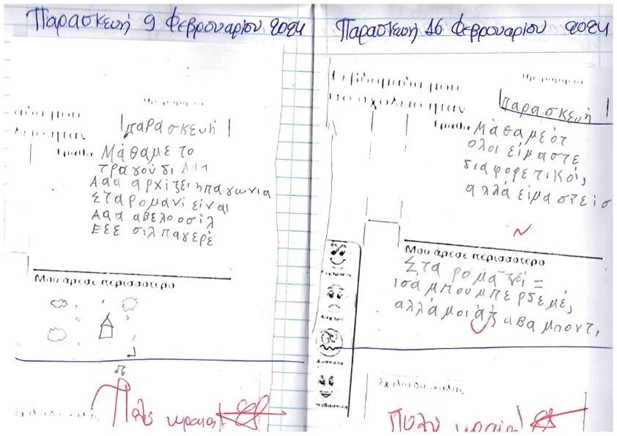 Παρασκευή 9 Φεβρουαρίου 2024
παρασκευή
Μάθαμε το
τραγούδι Ααα
Ααα αρχίζει η παγωνια
Στα ρομανί είναι
Ααα αβελ ο οσίλ
Εεε σιλ παγερέ
Μου άρεσε περισσότερο
Πολύ ωραία!
Παρασκευή 16 Φεβρουαρίου 2024
Η εβδομάδα μου
στο σχολείο ήταν
παρασκευή
Μάθαμε ότ
ολοι είμαστε
διαφορετικοί,
αλλά είμαστε ίσ
Μου άρεσε περισσότερο
Στα ρομανεί =
ισά μπουμπερδεμέ,
αλλά μοιάζ αβα μποντ,
Σχόλια δασκάλας
Πολύ ωραία!